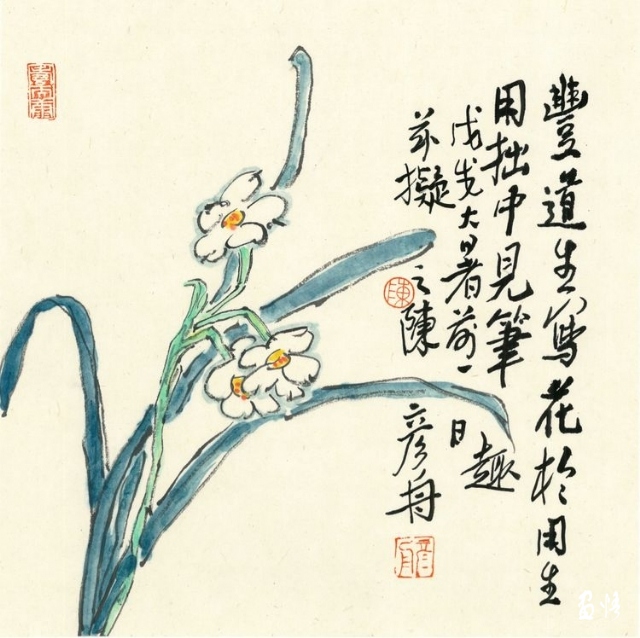 豐道生寫花於用生
用拙中見筆趣
戊戌大暑前一日
茲擬之陳彥舟
陳